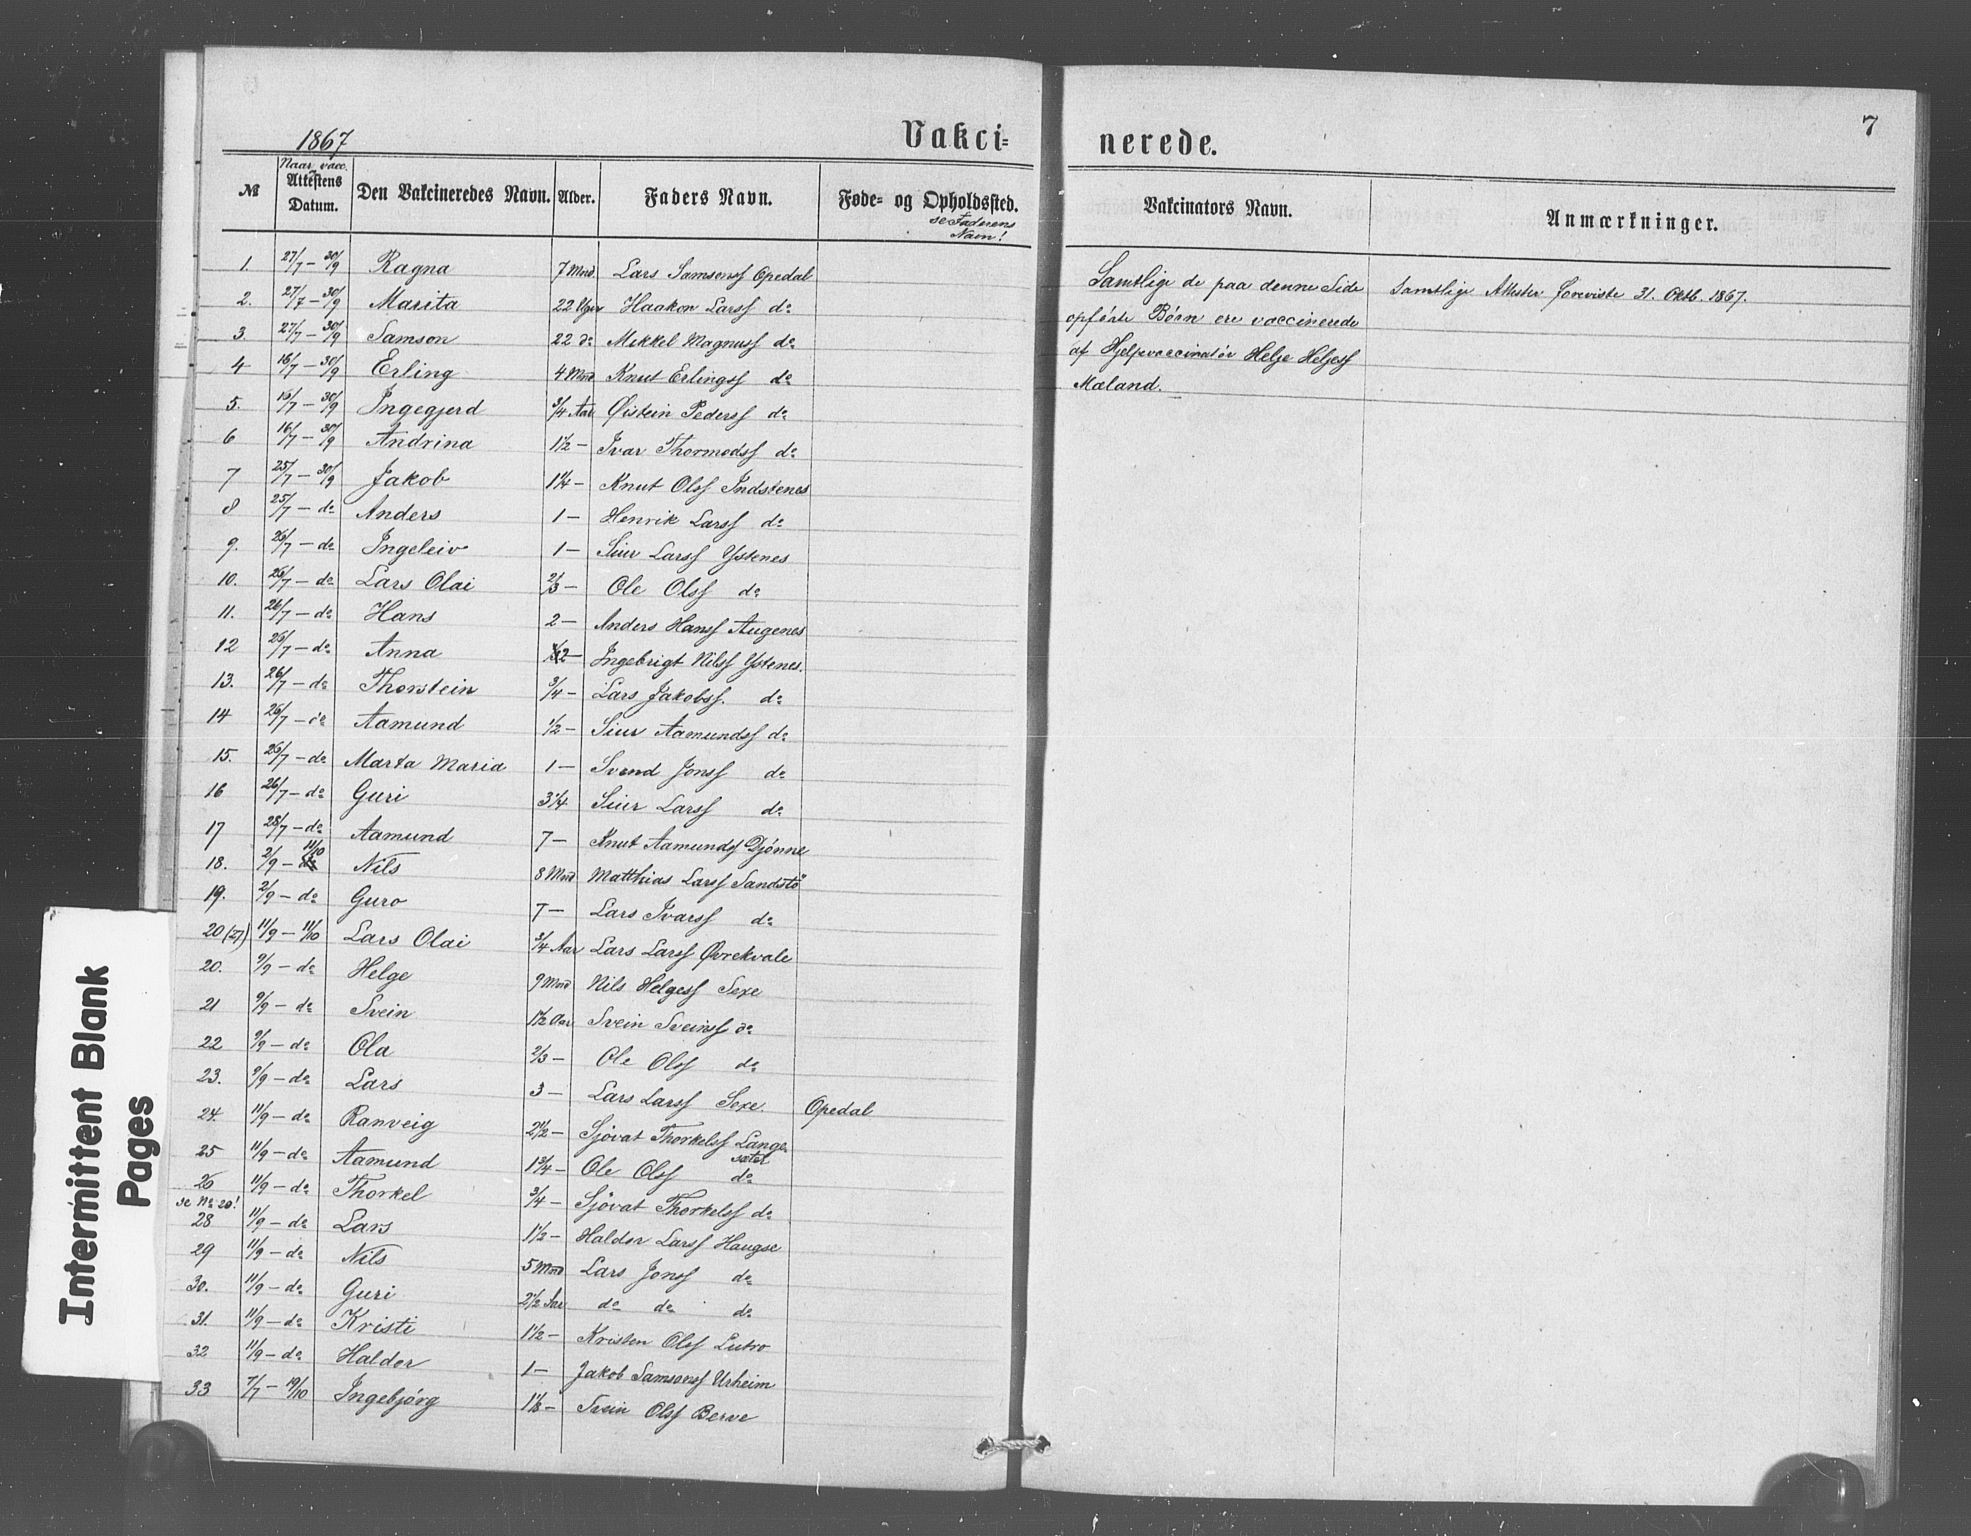 1867
Vakci-
nerede.
7
№
Naar vacc.
Attestens Datum.
Den Vakcineredes Navn.
Alder.
Faders Navn.
Føde- og Opholdssted.
se Faderens Navn!
Vakcinators Navn.
Anmærkninger.
1. 27/7 – 30/9 Ragna 7 Mnd. Lars Samsonsſ Opedal
2. 27/7 – 30/9 Marita 22 Uger Haakon Larsſ do
3. 27/7 – 30/9 Samson 22 do Mikkel Magnusſ do
4 16/7 – 30/9 Erling 4 Mnd Knut Erlingsſ do
5. 15/7 – 30/9 Ingegjerd 3/4 Aar Øistein Pedersſ do
6 16/7 – 30/9 Andrina 1 1/2 – Ivar Thormodsſ do
7 25/7 – 30/9 Jakob 1 1/4 – Knut Olsſ Indstenes
8 25/7 – do Anders 1 – Henrik Larsſ do
9. 26/7 – do Ingeleiv 1 – Siur Larsſ Ystenes
10. 26/7 – do Lars Olai 2/3 – Ole Olsſ do
11. 26/7 – do Hans 2 – Anders Hansſ Augenes
12 26/7 – do Anna 2 – Ingebrigt Nilsſ Ystenes.
13. 26/7 – do Thorstein 3/4 – Lars Jakobsſ. do
14 26/7 – do Aamund 1/2 – Siur Aamundsſ do
15. 26/7 – do Marta Maria 1 – Svend Jonsſ do
16 26/7 – do Guri 3 1/4 Siur Larsſ do
17 28/7 – do Aamund 7 – Knut Aamundsſ Djønne
18. 2/9 – 11/10 Nils 8 Mnd Matthias Larsſ Sandstö
19. 2/9 – do Guro 7 – Lars Ivarsſ do
20 (27) 11/9 – 11/10 Lars Olai 3/4 Aar Lars Larsſ Øvrekvale
20. 9/9 – do Helge 9 Mnd Nils Helgesſ Sexe
21 9/9 – do Svein 1 1/2 Aar Svein Sveinsſ do
22 9/9 – do Ola 2/3 – Ole Olsſ do
23. 9/9 – do Lars 3 – Lars Larsſ Sexe. Opedal
24. 11/9 – do Ranveig 2 1/2 – Sjövat Thorkelsſ Lange-
sætet
25 11/9 – do Aamund 1 3/4 – Ole Olsſ do
26 11/9 – do Thorkel 3/4 – Sjövat Thorkelsſ do
se No 20!
28 11/9 – do Lars 1 1/2 – Haldor Larsſ Haugse
29 11/9 – do Nils 5 Mnd Lars Jonsſ do
30. 11/9 – do Guri 2 1/2 Aar do do do
31. 11/9 – do Kristi 1 1/2 – Kristen Olsſ Lutro
32 11/9 – do Haldor 1 – Jakob Samsonsſ Urheim
33 7/7 – 19/10 Ingebjörg Svein Olsſ Berve
Samtlige de paa denne Side
opførte Børn ere vaccinerede
af Hjelpevaccinatör Helje Heljesſ
Mæland.
Samtlige Attester foreviste 31. Oktb. 1867.
Intermittent Blank
Pages